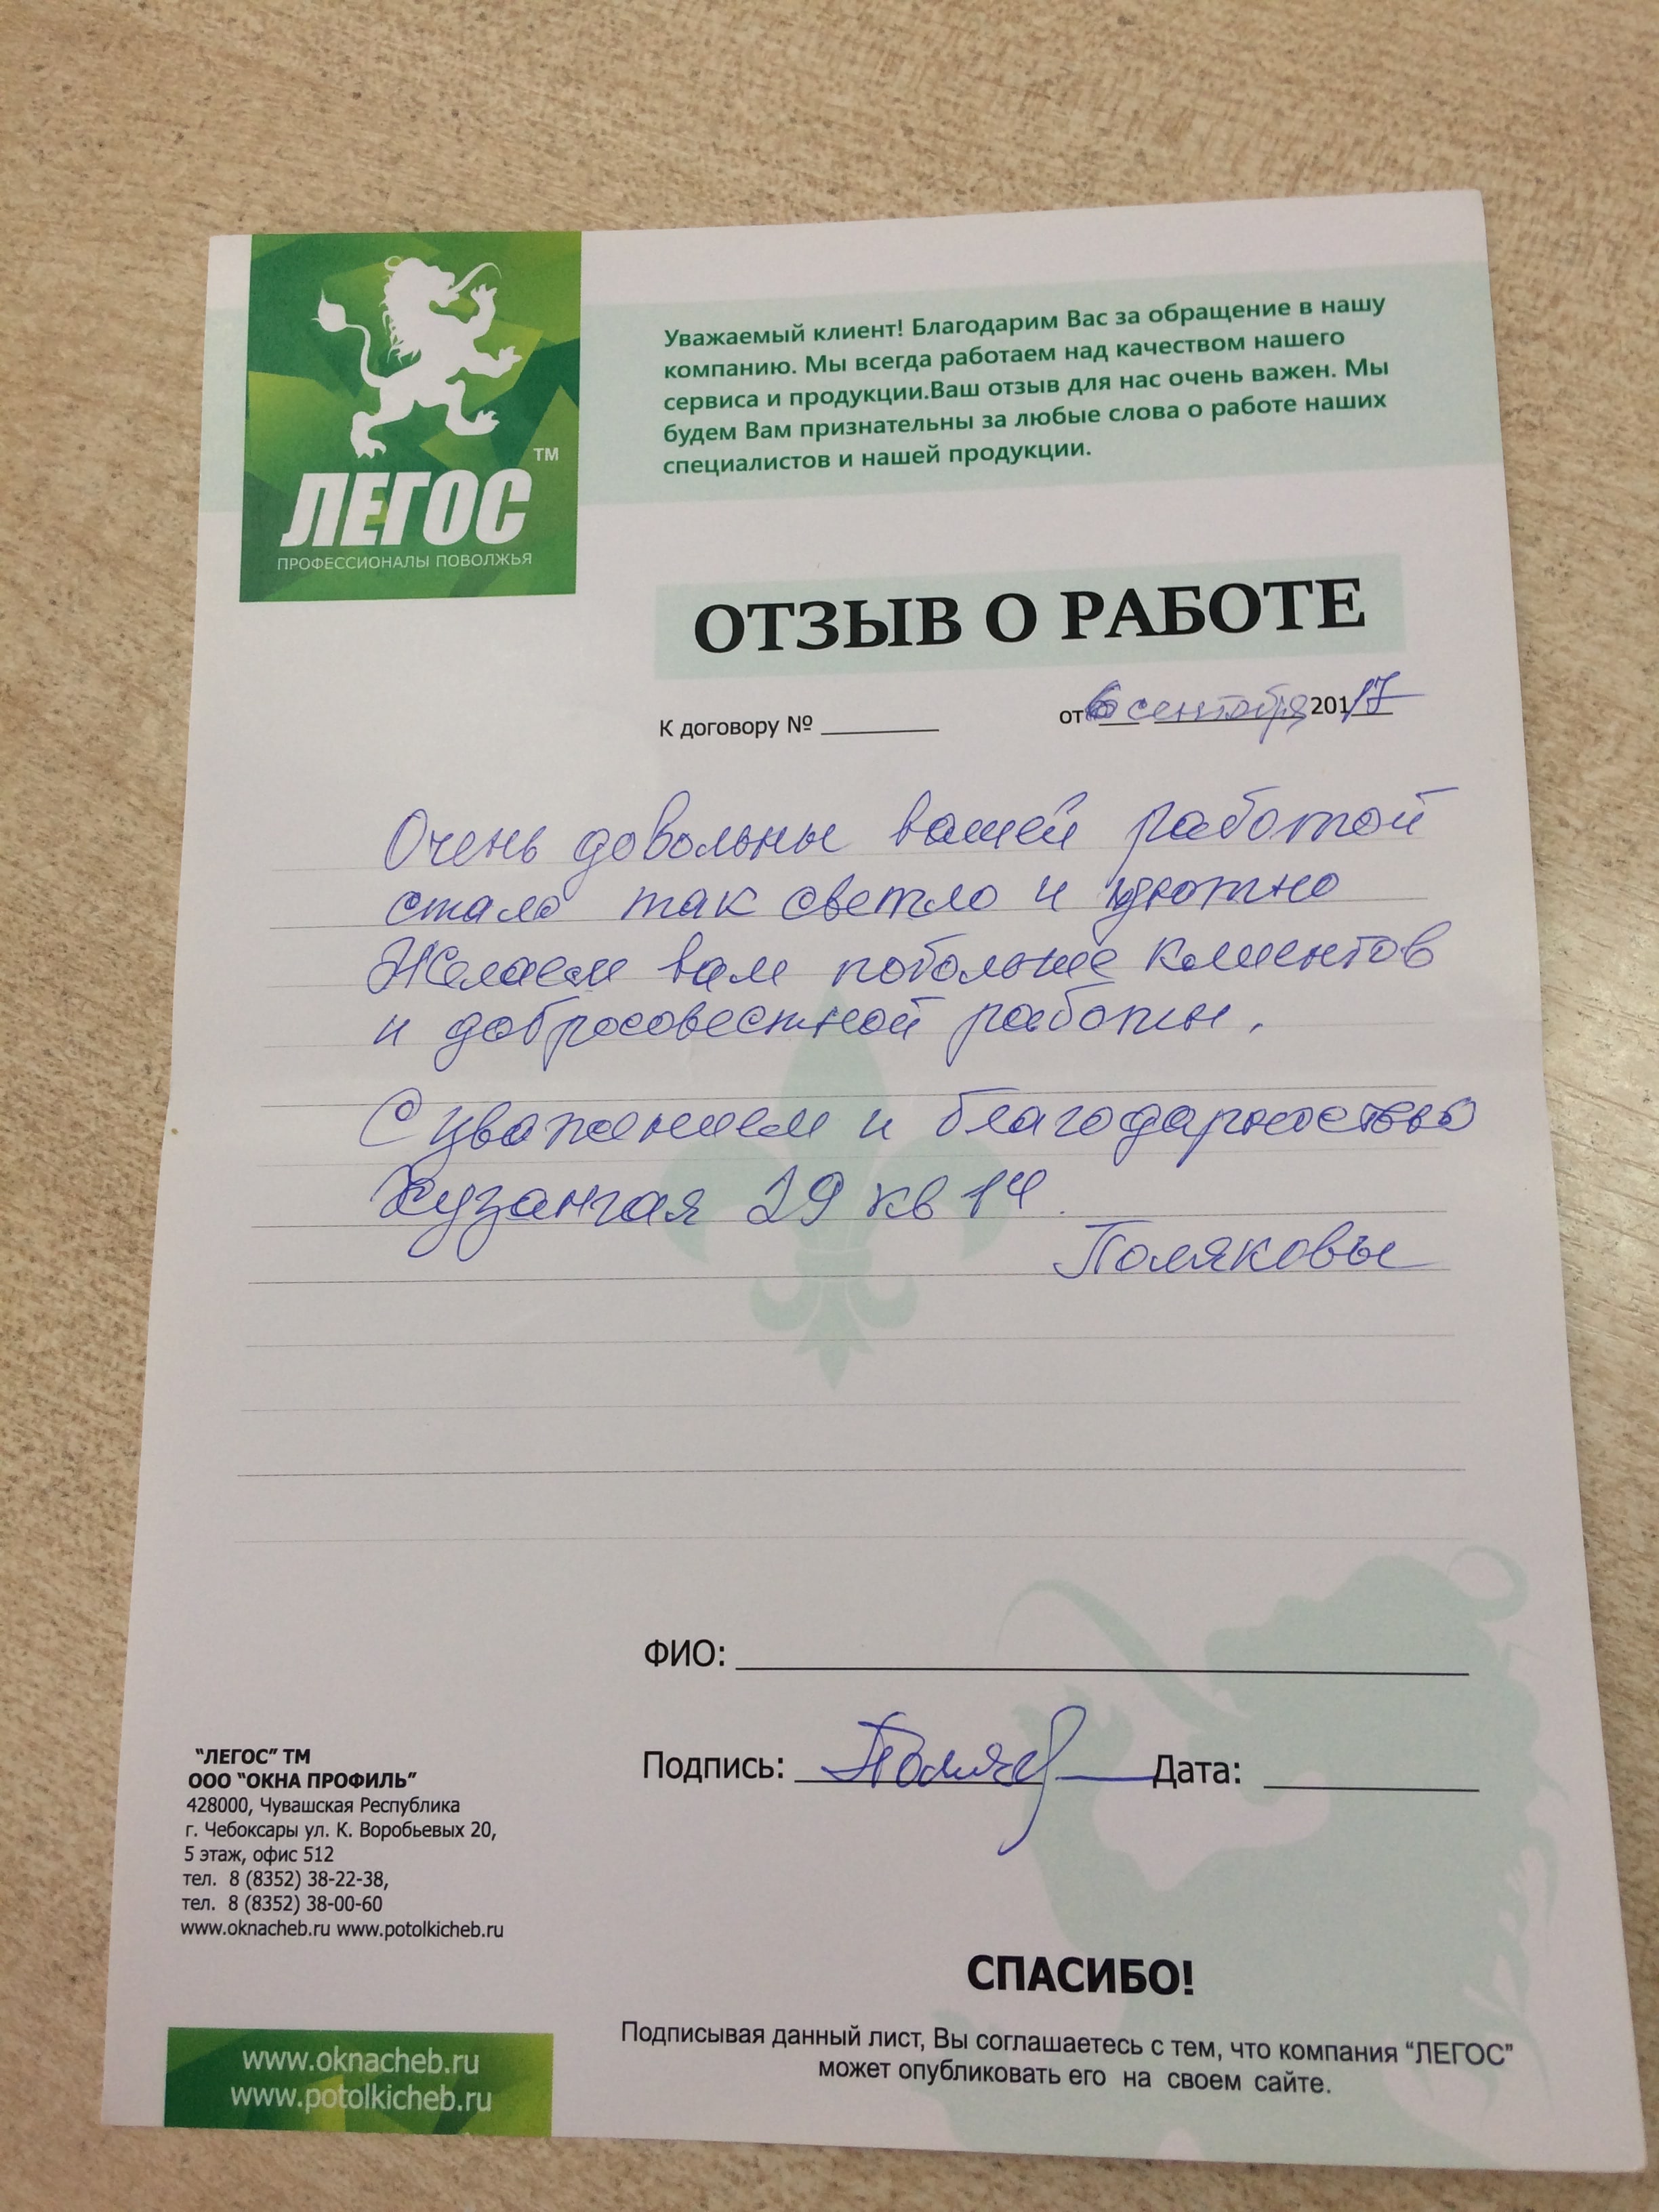 ЛЕГОС
TM
ПРОФЕССИОНАЛЫ ПОВОЛЖЬЯ
Уважаемый клиент! Благодарим Вас за обращение в нашу
компанию. Мы всегда работаем над качеством нашего
сервиса и продукции.Ваш отзыв для нас очень важен. Мы
будем Вам признательны за любые слова о работе наших
специалистов и нашей продукции.
ОТЗЫВ О РАБОТЕ
К договору № от 6 сентября 201 17
Очень довольны вашей работой
стало так светло и уютно
Желаем вам побольше клиентов
и добросовестной работы.
С уважением и благодарностью
Хузангая 29 кв 14
Поляковы
ФИО:
Подпись: Дата:
"ЛЕГОС" ТМ
ООО "ОКНА ПРОФИЛЬ"
428000, Чувашская Республика
г. Чебоксары ул. К. Воробьевых 20,
5 этаж, офис 512
тел. 8 (8352) 38-22-38,
тел. 8 (8352) 38-00-60
www.oknacheb.ru www.potolkicheb.ru
СПАСИБО!
Подписывая данный лист, Вы соглашаетесь с тем, что компания "ЛЕГОС"
может опубликовать его на своем сайте.
www.oknacheb.ru
www.potolkicheb.ru